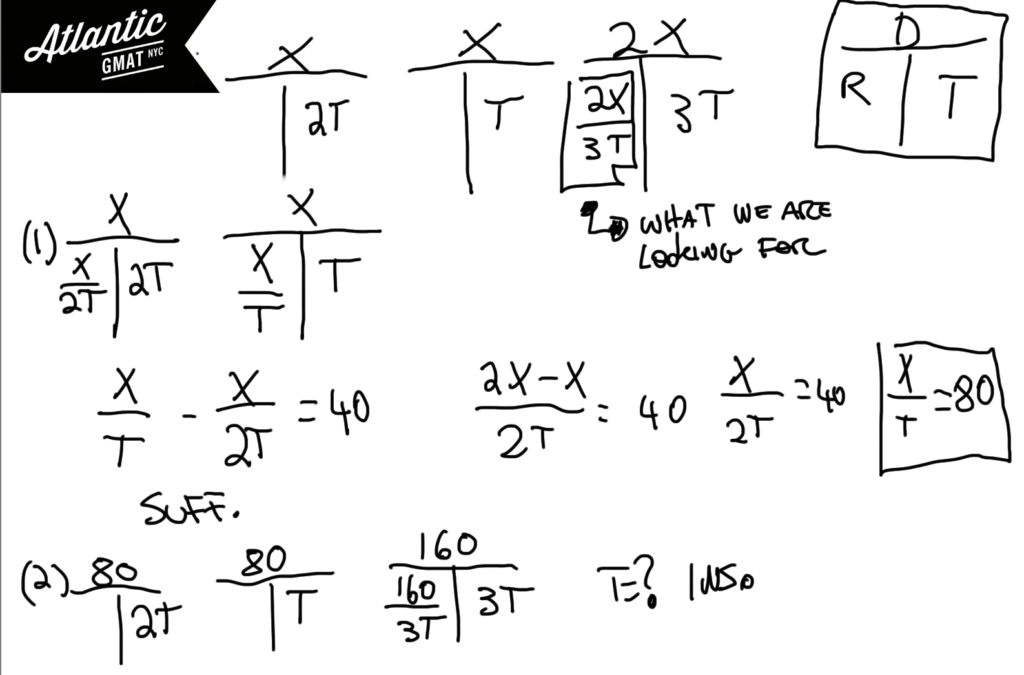 Atlantic
GMAT NYC
X
2T
X
T
2X
2X/3T
3T
D
R
T
WHAT WE ARE
LOOKING FOR
(1)
X
X/2T
2T
X
X/T
T
X/T - X/2T = 40
(2X-X)/2T = 40
X/2T = 40
X/T = 80
SUFF.
(2)
80
2T
80
T
160
160/3T
3T
T=?
INS.